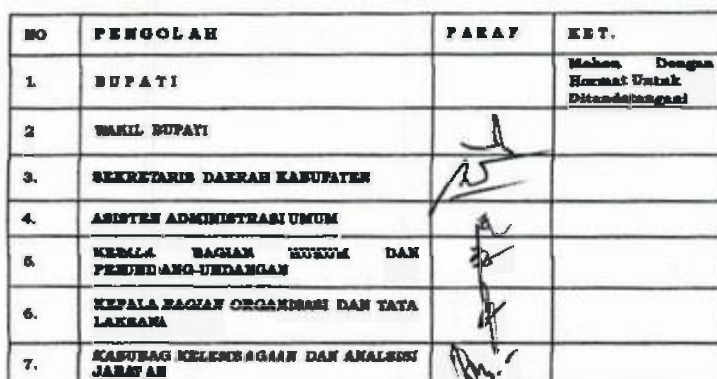 NO PENGOLAH PARAF KET.
1. BUPATI Mohon Dengan
Hormat Untuk
Ditandatangani
2 WAKIL BUPATI
3. SEKRETARIS DAERAH KABUPATEN
4. ASISTEN ADMINISTRASI UMUM
5. KEPALA BAGIAN HUKUM DAN
PERUNDANG-UNDANGAN
6. KEPALA BAGIAN ORGANISASI DAN TATA
LAKSANA
7. KASUBAG KELEMBAGAAN DAN ANALISIS
JABATAN